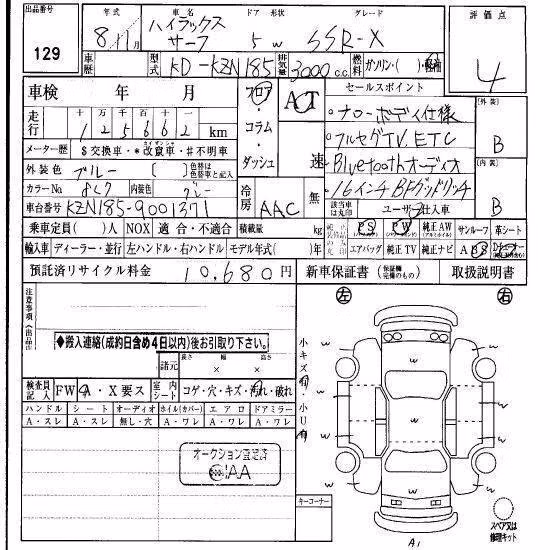 出品番号
129
年式 車名 ドア 形状 グレード
8/11月 ハイラックスサーフ 5 W SSR-X
評価点
4
車歴 型式 KD-KZN185 排気量 3000 c.c. 燃料 ガソリン・( )・軽油
車検 年 月
フロア・コラム・ダッシュ
AT
速
セールスポイント
・ナローボディ仕様
・フルセグTV. ETC
・Bluetoothオーディオ
・16インチBFグッドリッチ
外装 B
内装 B
走行 十万千百十
125662 km
メーター歴 $交換車・*改竄車・#不明車
外装色 ブルー ( ) 色替は色替車と記入
カラーNo 8K7 内装色 グレー
車台番号 KZN185-9001371
冷房 AAC 無
該当車は丸印 ユーザー仕入車
乗車定員( )人 NOX 適合・不適合 積載量 kg
PS PW 純正AW サンルーフ 革シート
輸入車 ディーラー・並行 左ハンドル・右ハンドル モデル年式( )年
エアバッグ 純正TV 純正ナビ ABS
預託済リサイクル料金 10,680円
新車保証書 取扱説明書
注意事項
◆搬入連絡(成約日含め4日以内)後お引取り下さい。
諸元 長さ × 幅 × 高さ
検査員記入 FW A・X要ス 室内シート コゲ・穴・キズ・汚れ・破れ
ハンドル シート オーディオ ホイル(カバー) エアロ ドアミラー
A・スレ A・スレ 無し・穴 A・ワレ A・ワレ A・ワレ
小キズ有・小U有
オークション査定済
JAA
キーコーナー
左 右
W
W
W
W
W
W
W
A1
スペア又は修理キット